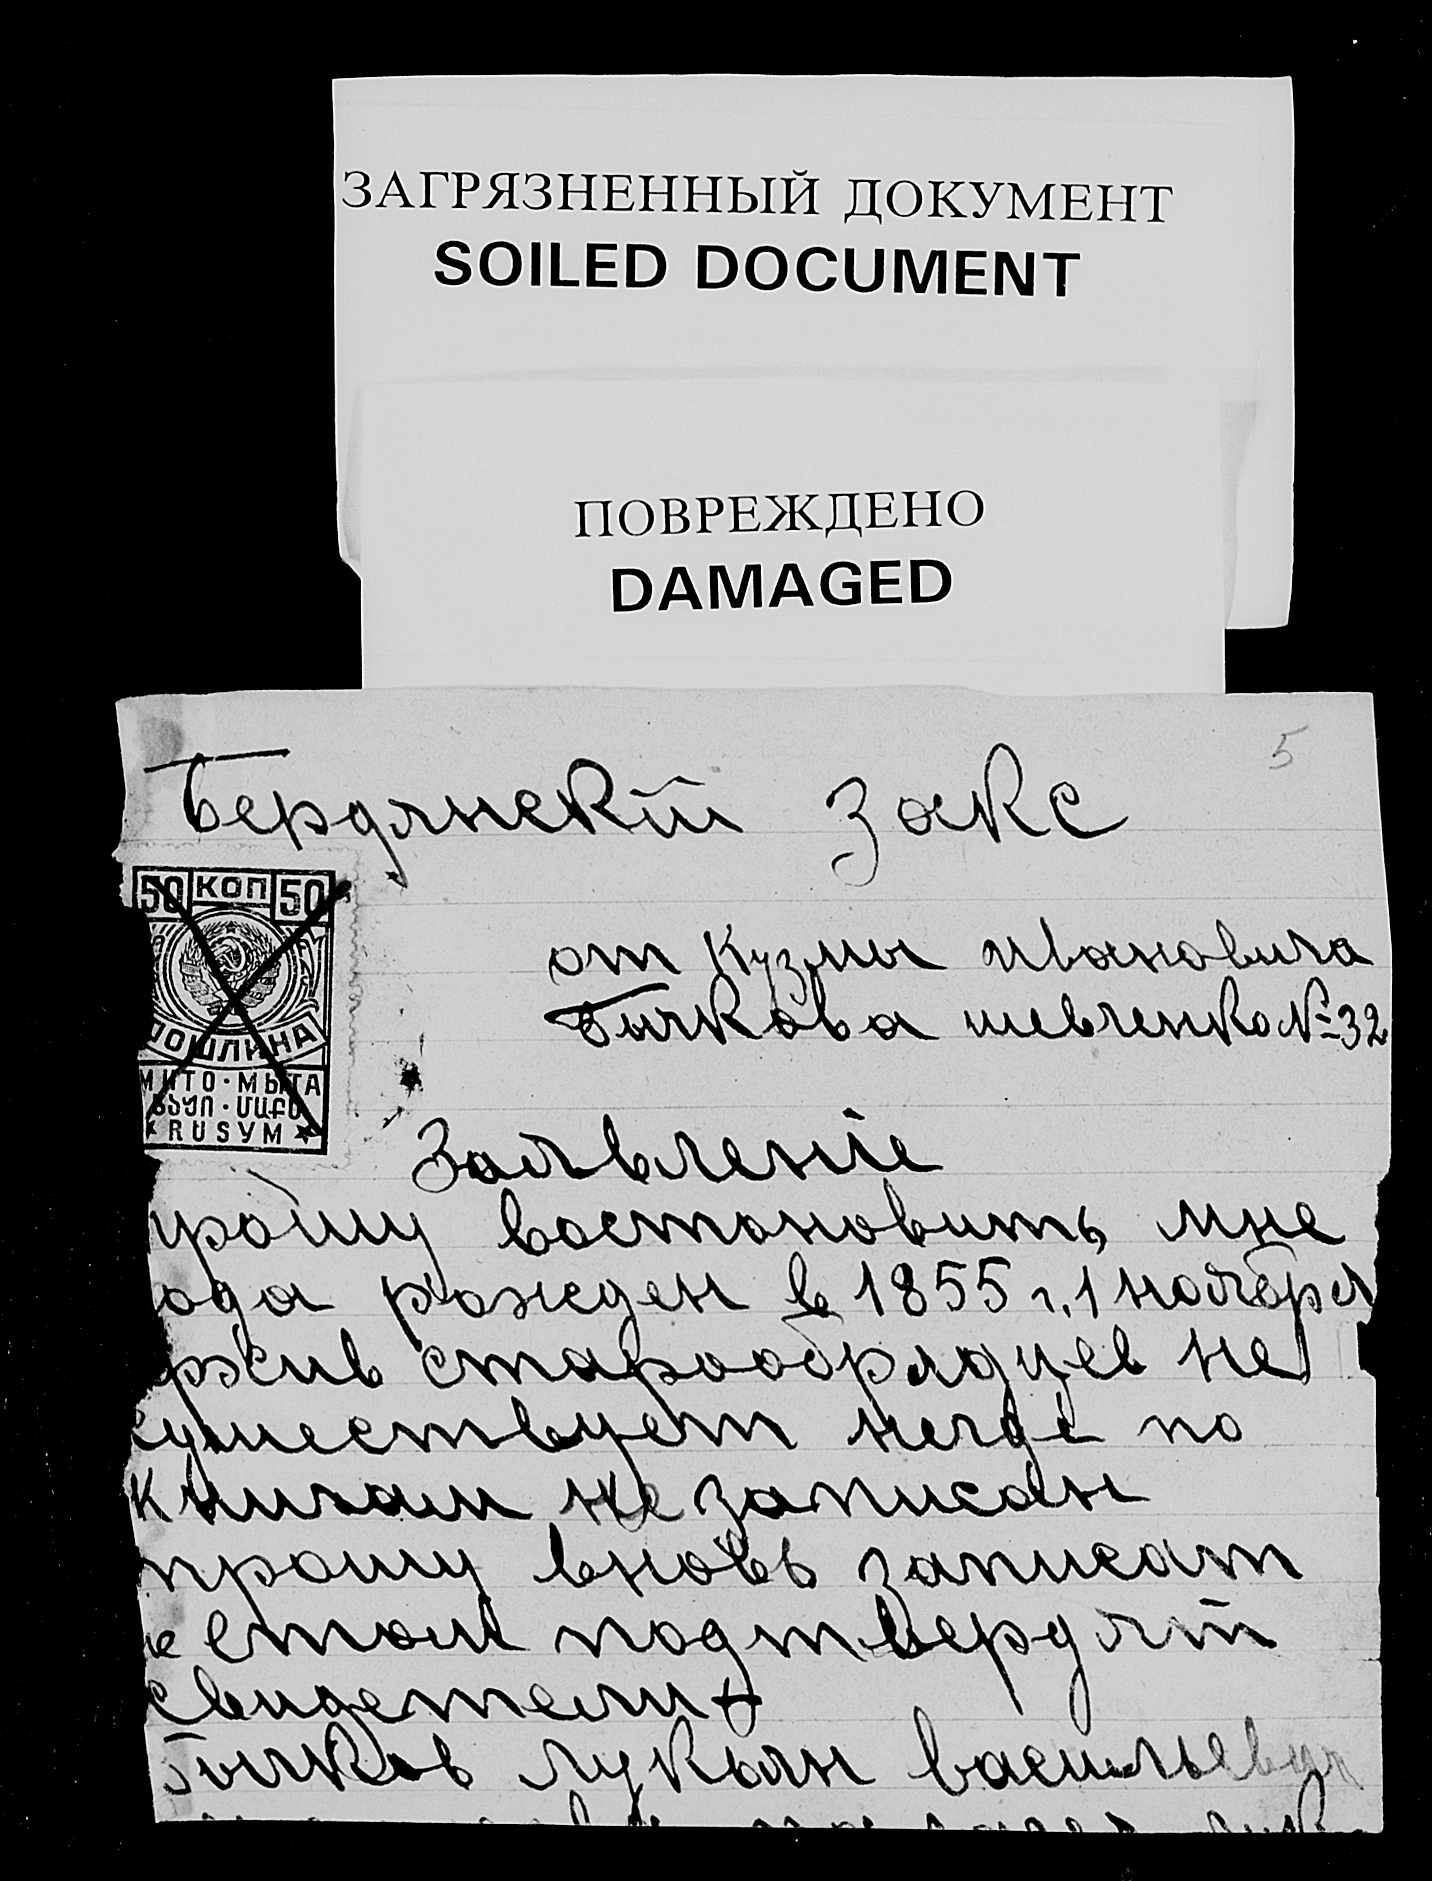 ЗАГРЯЗНЕННЫЙ ДОКУМЕНТ
SOILED DOCUMENT
ПОВРЕЖДЕНО
DAMAGED
5
Бердянскій Закс
50 КОП 50
ПОШЛИНА
МИТО · МЫТА
ԲԱԺԻ · ՄԱՔՍ
RUSУM
от Кузмы ивановича
Бычкова шевченко № 32
Заявленіе
прошу востановить мне
года рожден в 1855 г. 1 ноября
архив старообрядцев не
существует негде по
книгам не записан
прошу вновь записат
стом подтвердят
свидетели
Бычков лукьян васильевич